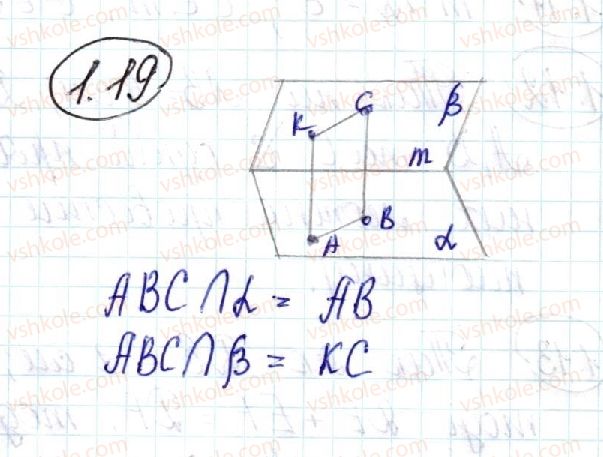 1.19
K C β
m
A B α
ABC ∩ α = AB
ABC ∩ β = KC
vshkole.com